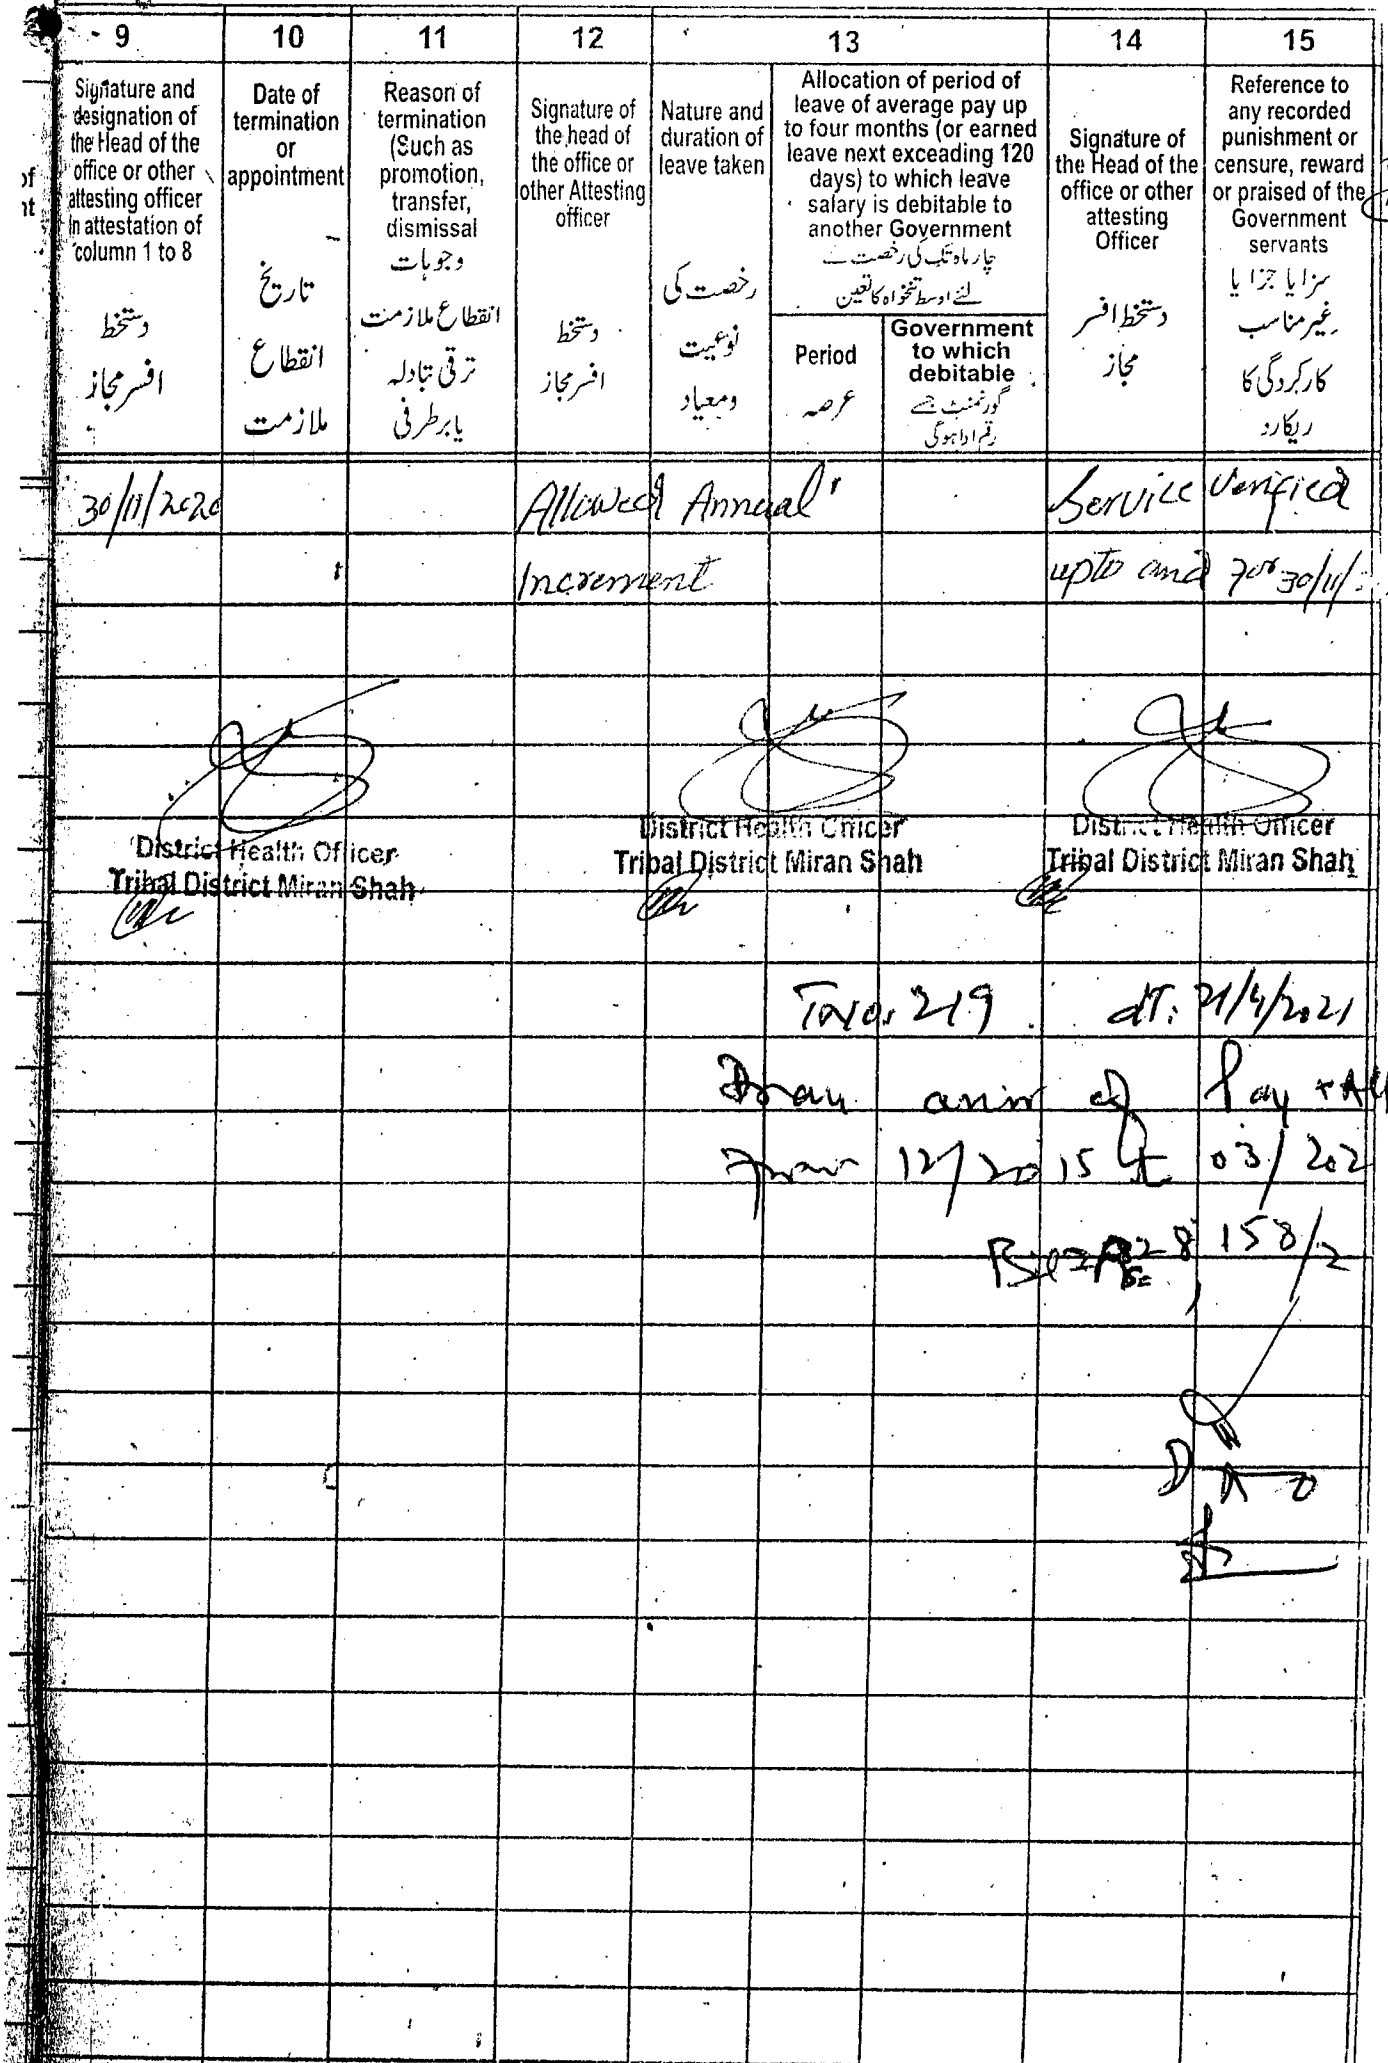 9
10
11
12
13
14
15
Signature and
designation of
the Head of the
office or other
attesting officer
in attestation of
column 1 to 8
دستخط
افسر مجاز
Date of
termination
or
appointment
تاریخ
انقطاع
ملازمت
Reason of
termination
(Such as
promotion,
transfer,
dismissal
وجوہات
انقطاع ملازمت
ترقی تبادلہ
یا برطرفی
Signature of
the head of
the office or
other Attesting
officer
دستخط
افسر مجاز
Nature and
duration of
leave taken
رخصت کی
نوعیت
ومعیاد
Allocation of period of
leave of average pay up
to four months (or earned
leave next exceading 120
days) to which leave
salary is debitable to
another Government
چار ماہ تک کی رخصت کے
لئے اوسط تنخواہ کا تعین
Period
عرصہ
Government
to which
debitable
گورنمنٹ جسے
رقم ادا ہوگی
Signature of
the Head of the
office or other
attesting
Officer
دستخط افسر
مجاز
Reference to
any recorded
punishment or
censure, reward
or praised of the
Government
servants
سزا یا جزا یا
غیر مناسب
کارکردگی کا
ریکارڈ
30/11/2020
Allowed Annual
Increment
Service Verified
upto and for 30/11/
District Health Officer
Tribal District Miran Shah
District Health Officer
Tribal District Miran Shah
District Health Officer
Tribal District Miran Shah
219 dT: 21/4/2021
of Pay +
from 12/2015 to 03/202